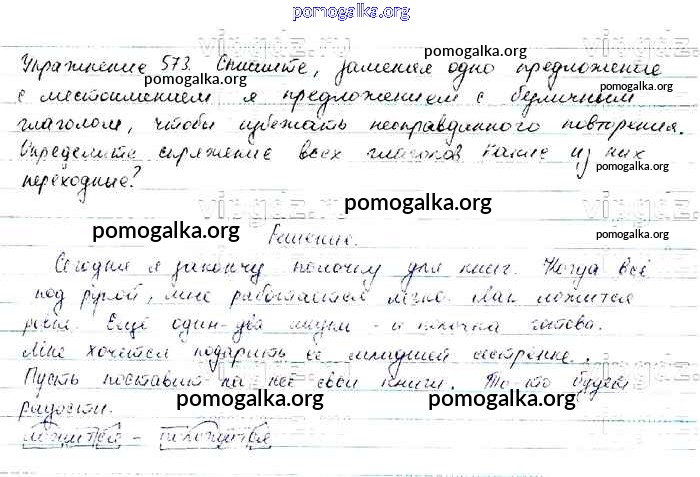 pomogalka.org
Упражнение 573. Спишите, заменяя одно предложение
с местоимением я предложением с безличным
глаголом, чтобы избежать неоправданного повторения.
Определите спряжение всех глаголов. Какие из них
переходные?
Решение.
Сегодня я закончу полочку для книг. Когда всё
под рукой, мне работается легко. Лак ложится
Ещё один-два - и полочка готова.
Мне хочется подарить её младшей сестрёнке.
Пусть поставит на неё свои книги. То-то будет
радости.
ложится -
pomogalka.org
pomogalka.org
pomogalka.org
pomogalka.org
pomogalka.org
pomogalka.org
pomogalka.org
pomogalka.org